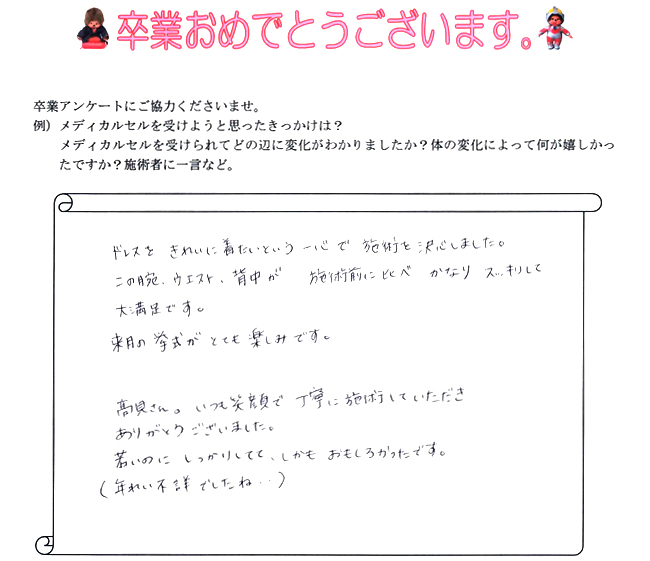 卒業おめでとうございます。
卒業アンケートにご協力くださいませ。
例）メディカルセルを受けようと思ったきっかけは？
メディカルセルを受けられてどの辺に変化がわかりましたか？体の変化によって何が嬉しかっ
たですか？施術者に一言など。
ドレスを きれいに着たいという 一心で 施術を 決心しました。
この腕、ウエスト、背中が 施術前に比べ かなり スッキリして
大満足です。
来月の挙式が とても 楽しみです。
高見さん。いつも笑顔で 丁寧に施術していただき
ありがとうございました。
若いのに しっかりしてて、しかも おもしろかったです。
(年れい不詳でしたね…)